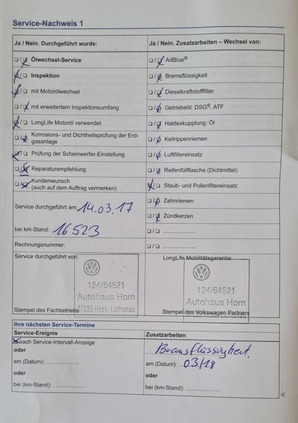 Service-Nachweis 1
Ja / Nein. Durchgeführt wurde:
Ölwechsel-Service
Inspektion
mit Motorölwechsel
mit erweitertem Inspektionsumfang
LongLife Motoröl verwendet
Korrosions- und Dichtheitsprüfung der Erdgasanlage
Prüfung der Scheinwerfer-Einstellung
Reparaturempfehlung
Kundenwunsch
(auch auf dem Auftrag vermerken)
Service durchgeführt am: 14.03.17
bei km-Stand: 16523
Rechnungsnummer:
Service durchgeführt von:
124/64521
Autohaus Horn
Hess. Lichtenau
Stempel des Fachbetriebs
Ja / Nein. Zusatzarbeiten – Wechsel von:
AdBlue®
Bremsflüssigkeit
Dieselkraftstofffilter
Getriebeöl: DSG®, ATF
Haldexkupplung: Öl
Keilrippenriemen
Luftfiltereinsatz
Reifenfüllflasche (Dichtmittel)
Staub- und Pollenfiltereinsatz
Zahnriemen
Zündkerzen
LongLife Mobilitätsgarantie:
124/64521
Autohaus Horn
Stempel des Volkswagen Partners
Ihre nächsten Service-Termine
Service-Ereignis
nach Service-Intervall-Anzeige
oder
am (Datum):
oder
bei (km-Stand):
Zusatzarbeiten
am (Datum): 03/19
oder
bei (km-Stand):